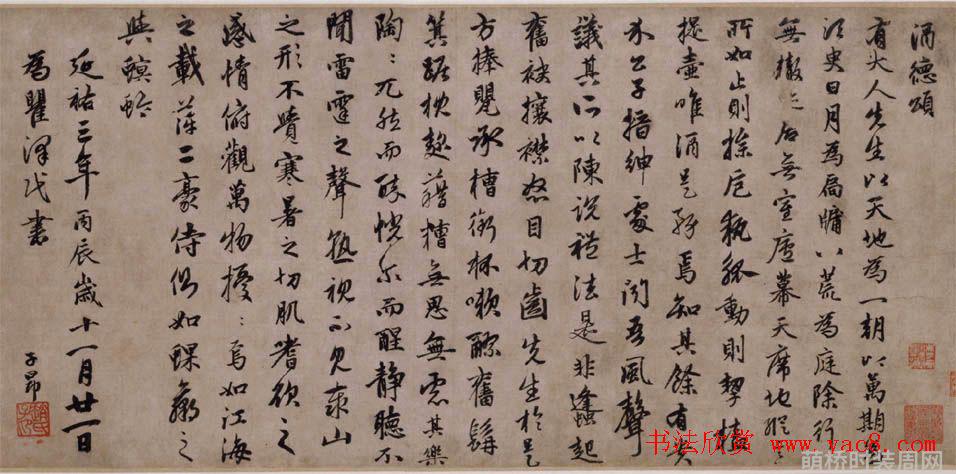 酒德頌
有大人先生以天地為一朝以萬期為
須臾日月為扃牖八荒為庭除行
無轍迹居無室廬幕天席地縱意
所如止則操卮執觚動則挈榼
提壺唯酒是務焉知其餘有貴
介公子搢紳處士聞吾風聲
議其所以陳說禮法是非蠭起
奮袂攘襟怒目切齒先生於是
方捧甖承槽銜杯漱醪奮髯
箕踞枕麴藉糟無思無慮其樂
陶〻兀然而醉恍尔而醒静聽不
聞雷霆之聲熟視不見泰山
之形不覺寒暑之切肌嗜欲之
感情俯觀萬物擾〻焉如江海
之載萍二豪侍側如蜾蠃之
與螟蛉
延祐三年丙辰歲十一月廿一日
為瞿澤民書
子昂
书法欣赏 www.yac8.com
萌桥时装周网